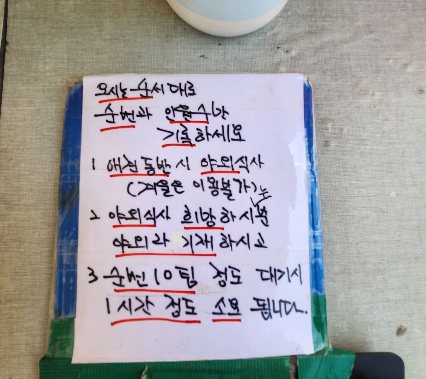 오시는 순서대로
순번과 인원수만
기록하세요
1 애견동반시 야외식사
(겨울은 이용불가)
2 야외식사 희망하시는분
야외라 기재하시고
3 순번 10팀 정도 대기시
1시간 정도 소요 됩니다.